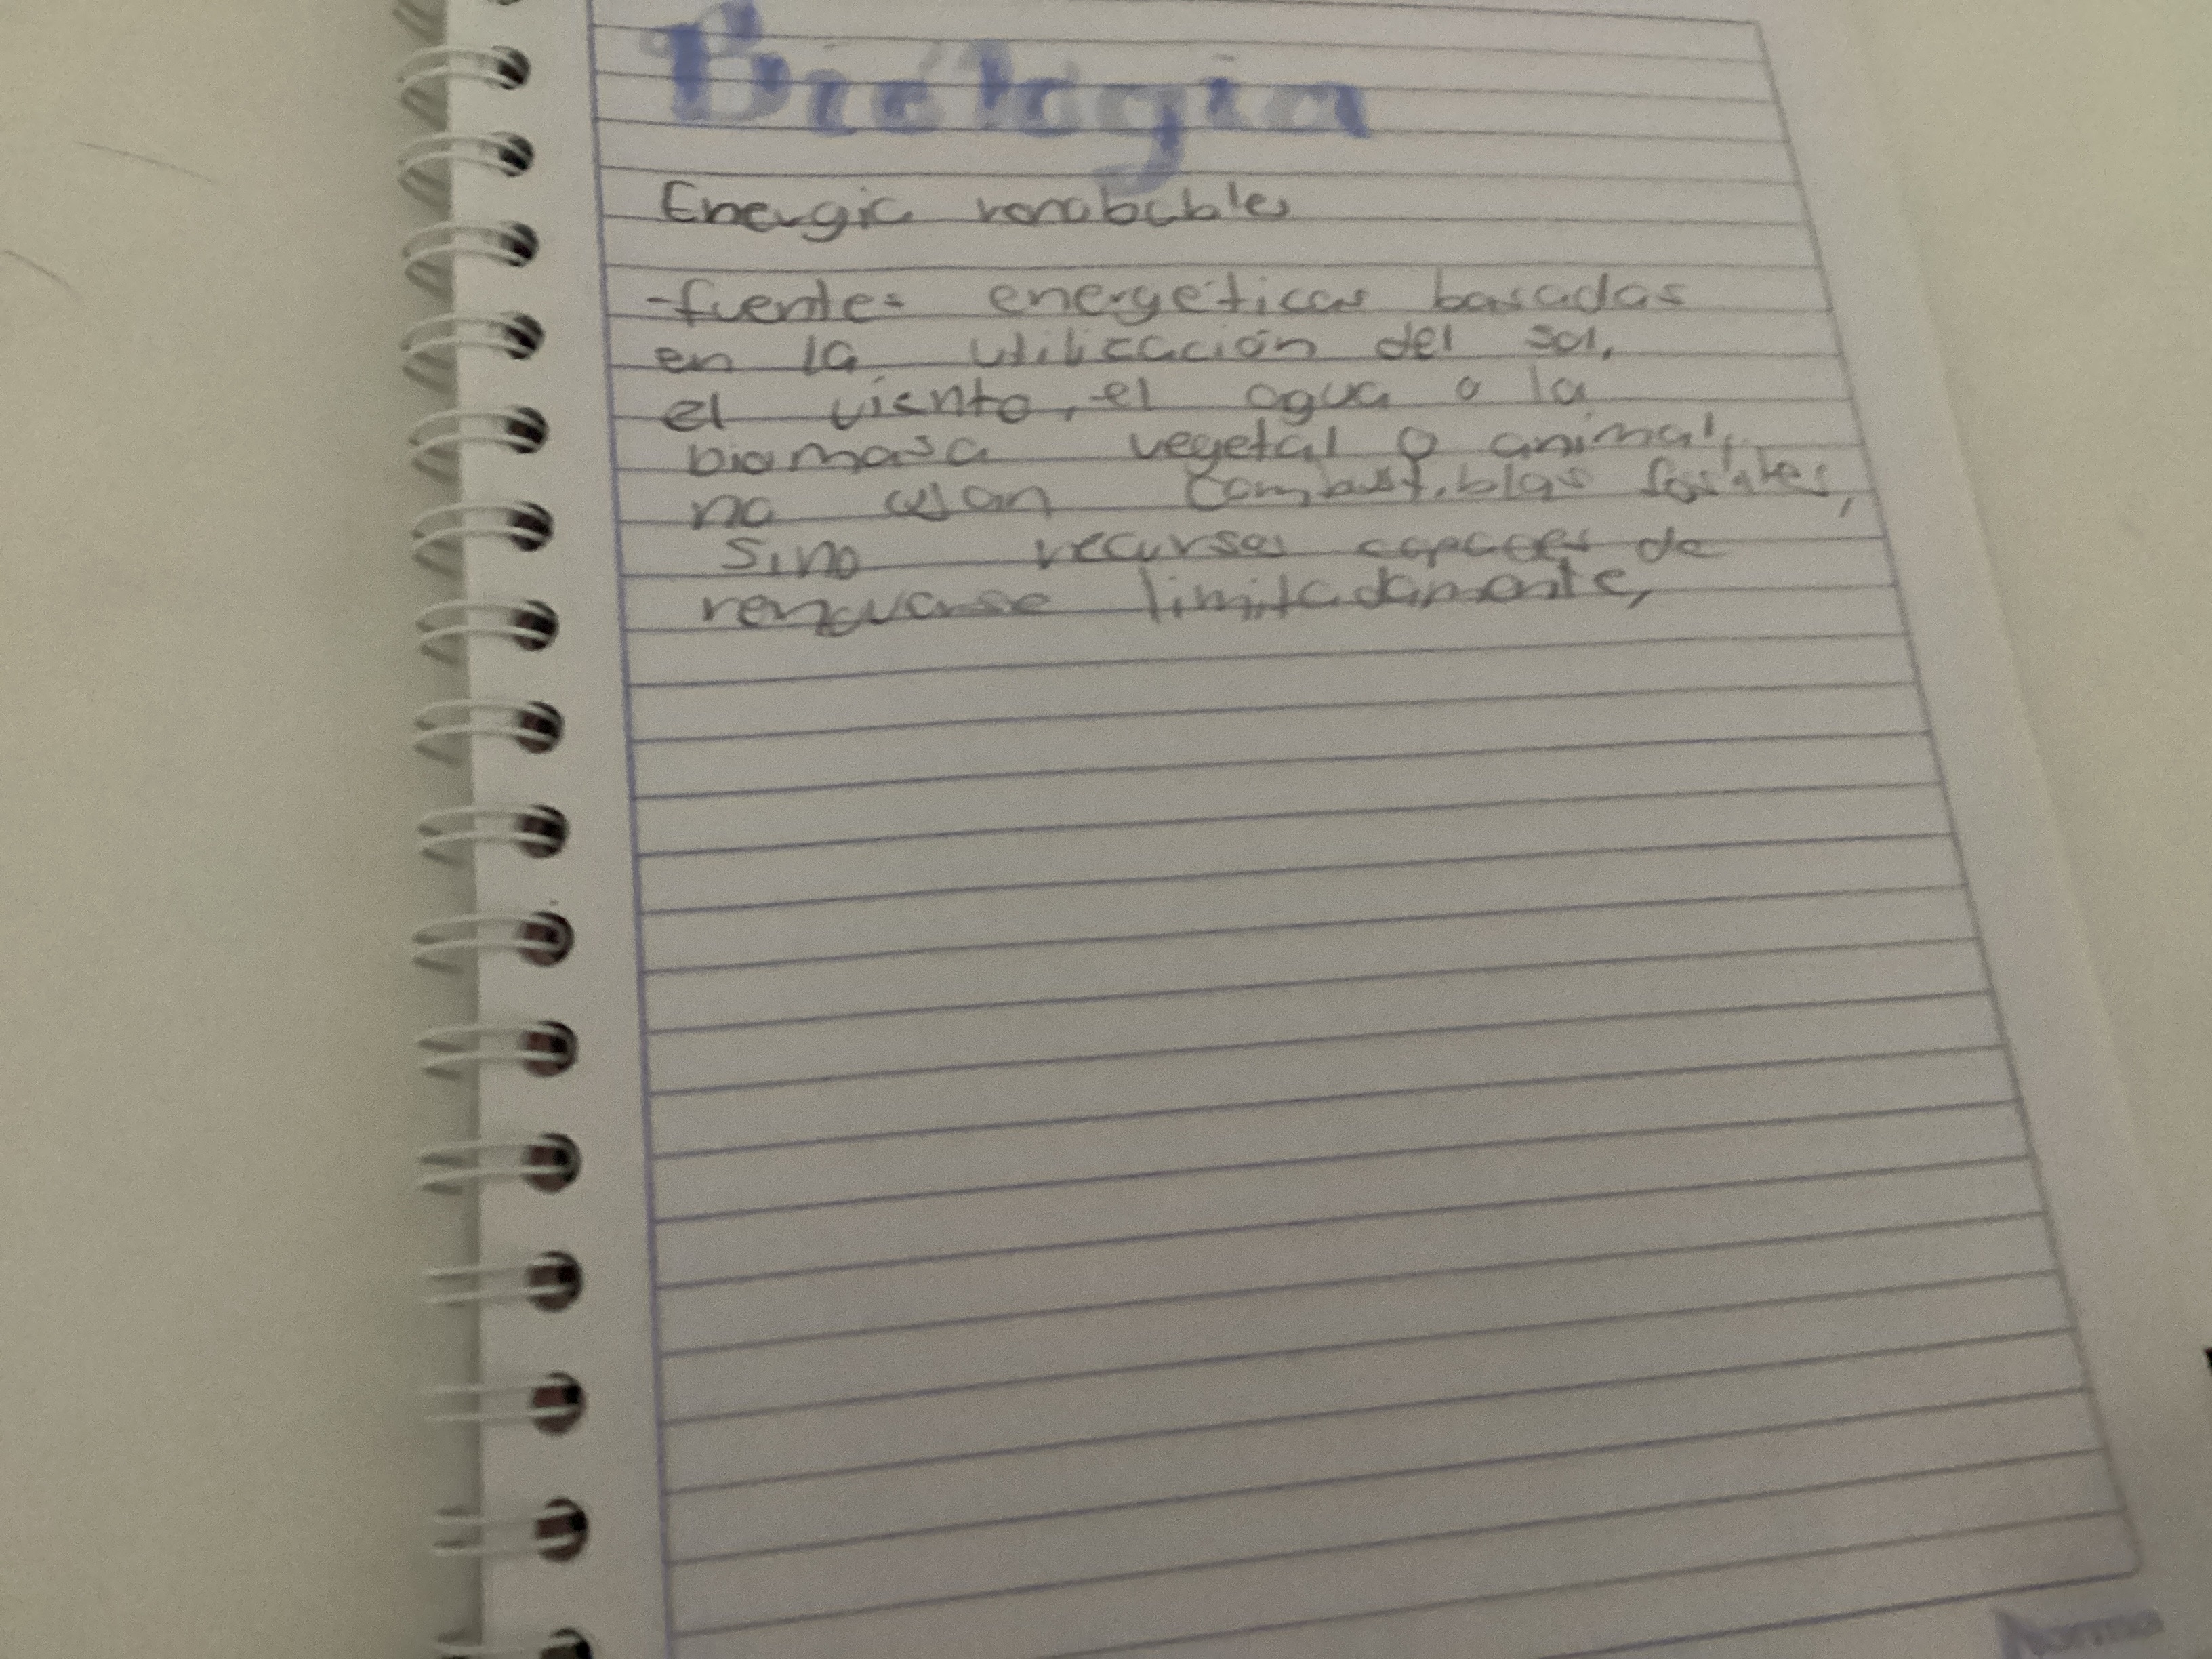 Biología
Energia renobables
-fuentes energéticas basadas
en la utilización del sol,
el viento, el agua o la
biomasa vegetal o animal,
no usan combustibles fosiles,
sino recursos capaces de
renovarse limitadamente,
Norma